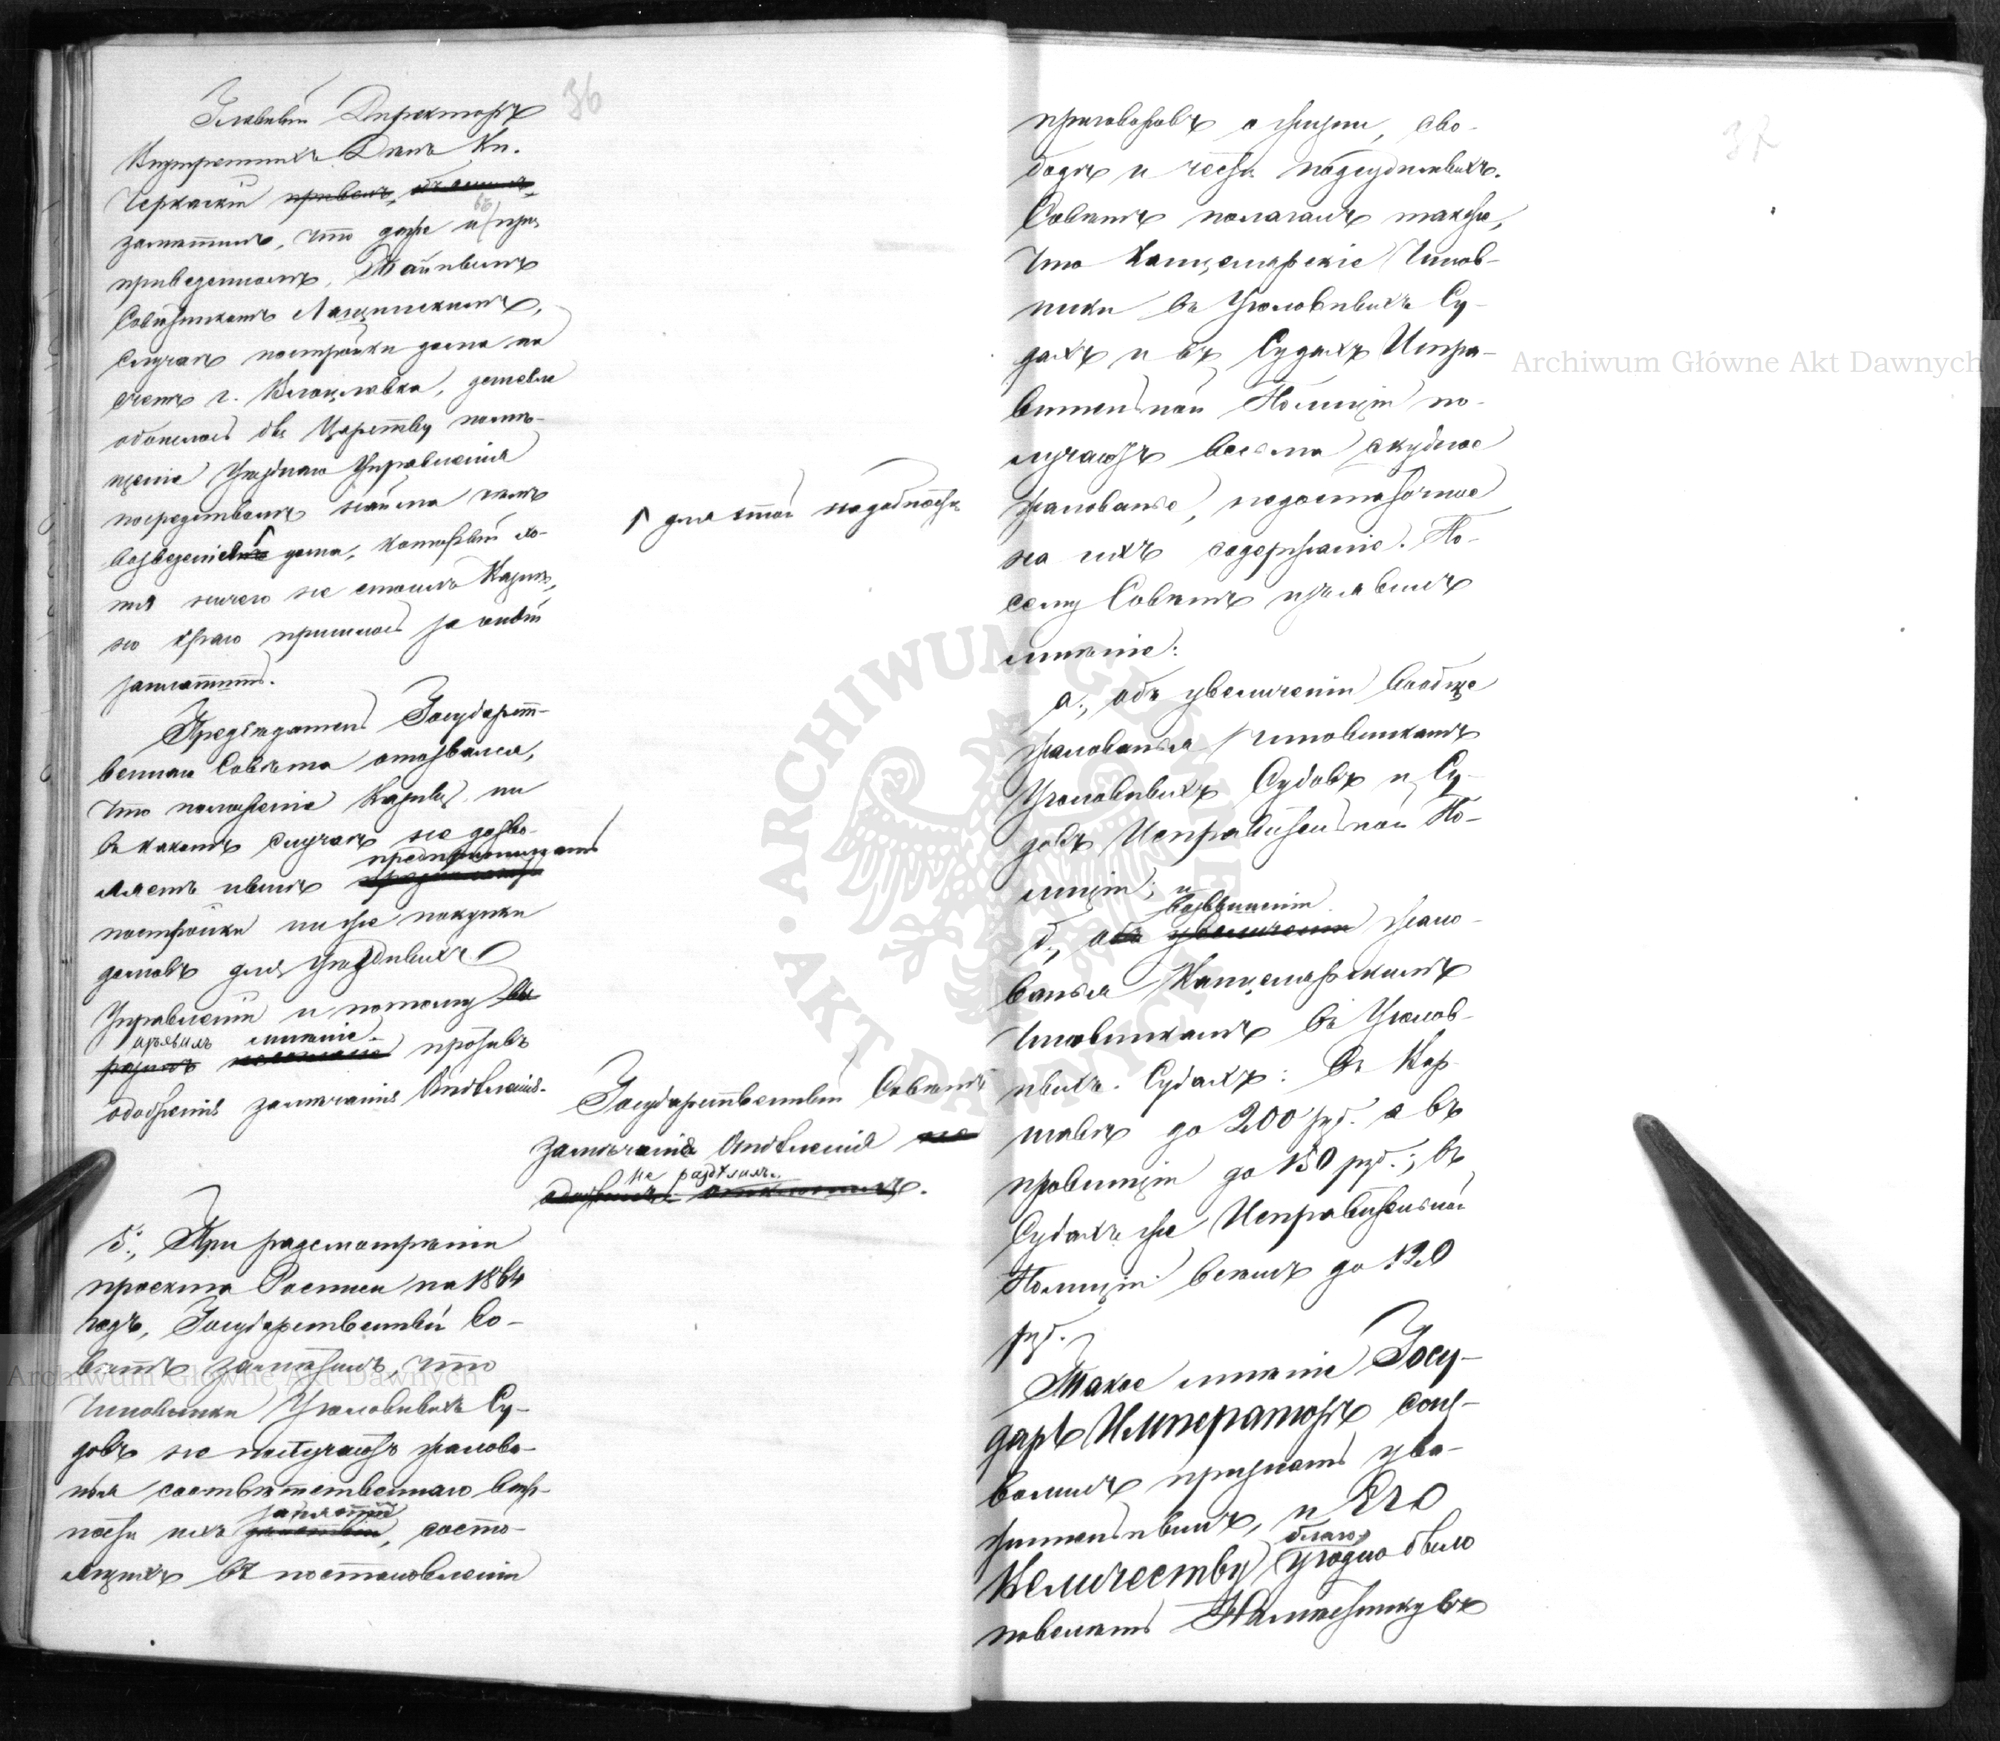 36
Главный Директоръ
Внутреннихъ Дѣлъ Кн.
Черкаскій
замѣтилъ, что даже и въ при
приведенномъ, Тайнымъ
Совѣтникомъ Лащинскимъ,
случаѣ постройки дома на
счетъ г. Влоцлавка, дешевле
обошлось бы Царству помѣ-
щеніе Уѣзднаго Управленія
посредствомъ найма чѣмъ
возведеніемъ дома, который хо-
тя ничего не стоилъ Казнѣ,
но краю пришлось за оный
заплатить.
для этой надобности
Предсѣдатель Государст-
веннаго Совѣта отозвался,
что положеніе Казны, ни
въ какомъ случаѣ не дозво-
ляетъ нынѣ предпринимать
постройки ни же покупки
домовъ для Уѣздныхъ
Управленій и потому
изъявилъ мнѣніе
противъ
одобренія замѣчанія Отдѣленія.
Государственный Совѣтъ
замѣчанія Отдѣленія
не раздѣлилъ.
5., При разсмотрѣніи
проекта Росписи на 1864
годъ, Государственный Со-
вѣтъ замѣтилъ, что
Чиновники Уголовныхъ Су-
довъ не получаютъ жалова-
нья соотвѣтственнаго важ-
ности ихъ занятій, состо-
ящихъ въ постановленіи
37
приговоровъ о жизни, сво-
бодѣ и чести подсудимыхъ.
Совѣтъ полагалъ также,
что Канцелярскіе Чинов-
ники въ Уголовныхъ Су-
дахъ и въ Судахъ Испра-
вительной Полиціи по-
лучаютъ весьма скудное
жалованье, недостаточное
на ихъ содержаніе. По-
сему Совѣтъ изъявилъ
мнѣніе:
а., объ увеличеніи вообще
жалованья Чиновникамъ
Уголовныхъ Судовъ и Су-
довъ Исправительной По-
лиціи; и
б., о возвышеніи жало-
ванья Канцелярскимъ
Чиновникамъ въ Уголов-
ныхъ Судахъ: въ Вар-
шавѣ до 200 руб. а въ
провинціи до 150 руб.; въ
Судахъ же Исправительной
Полиціи всѣмъ до 120
руб.
Такое мнѣніе Госу-
дарь Императоръ соиз-
волилъ признать ува-
жительнымъ, и Его
Величеству благоугодно было
повелѣть Намѣстнику въ
Archiwum Główne Akt Dawnych
Archiwum Główne Akt Dawnych
ARCHIWUM GŁÓWNE AKT DAWNYCH